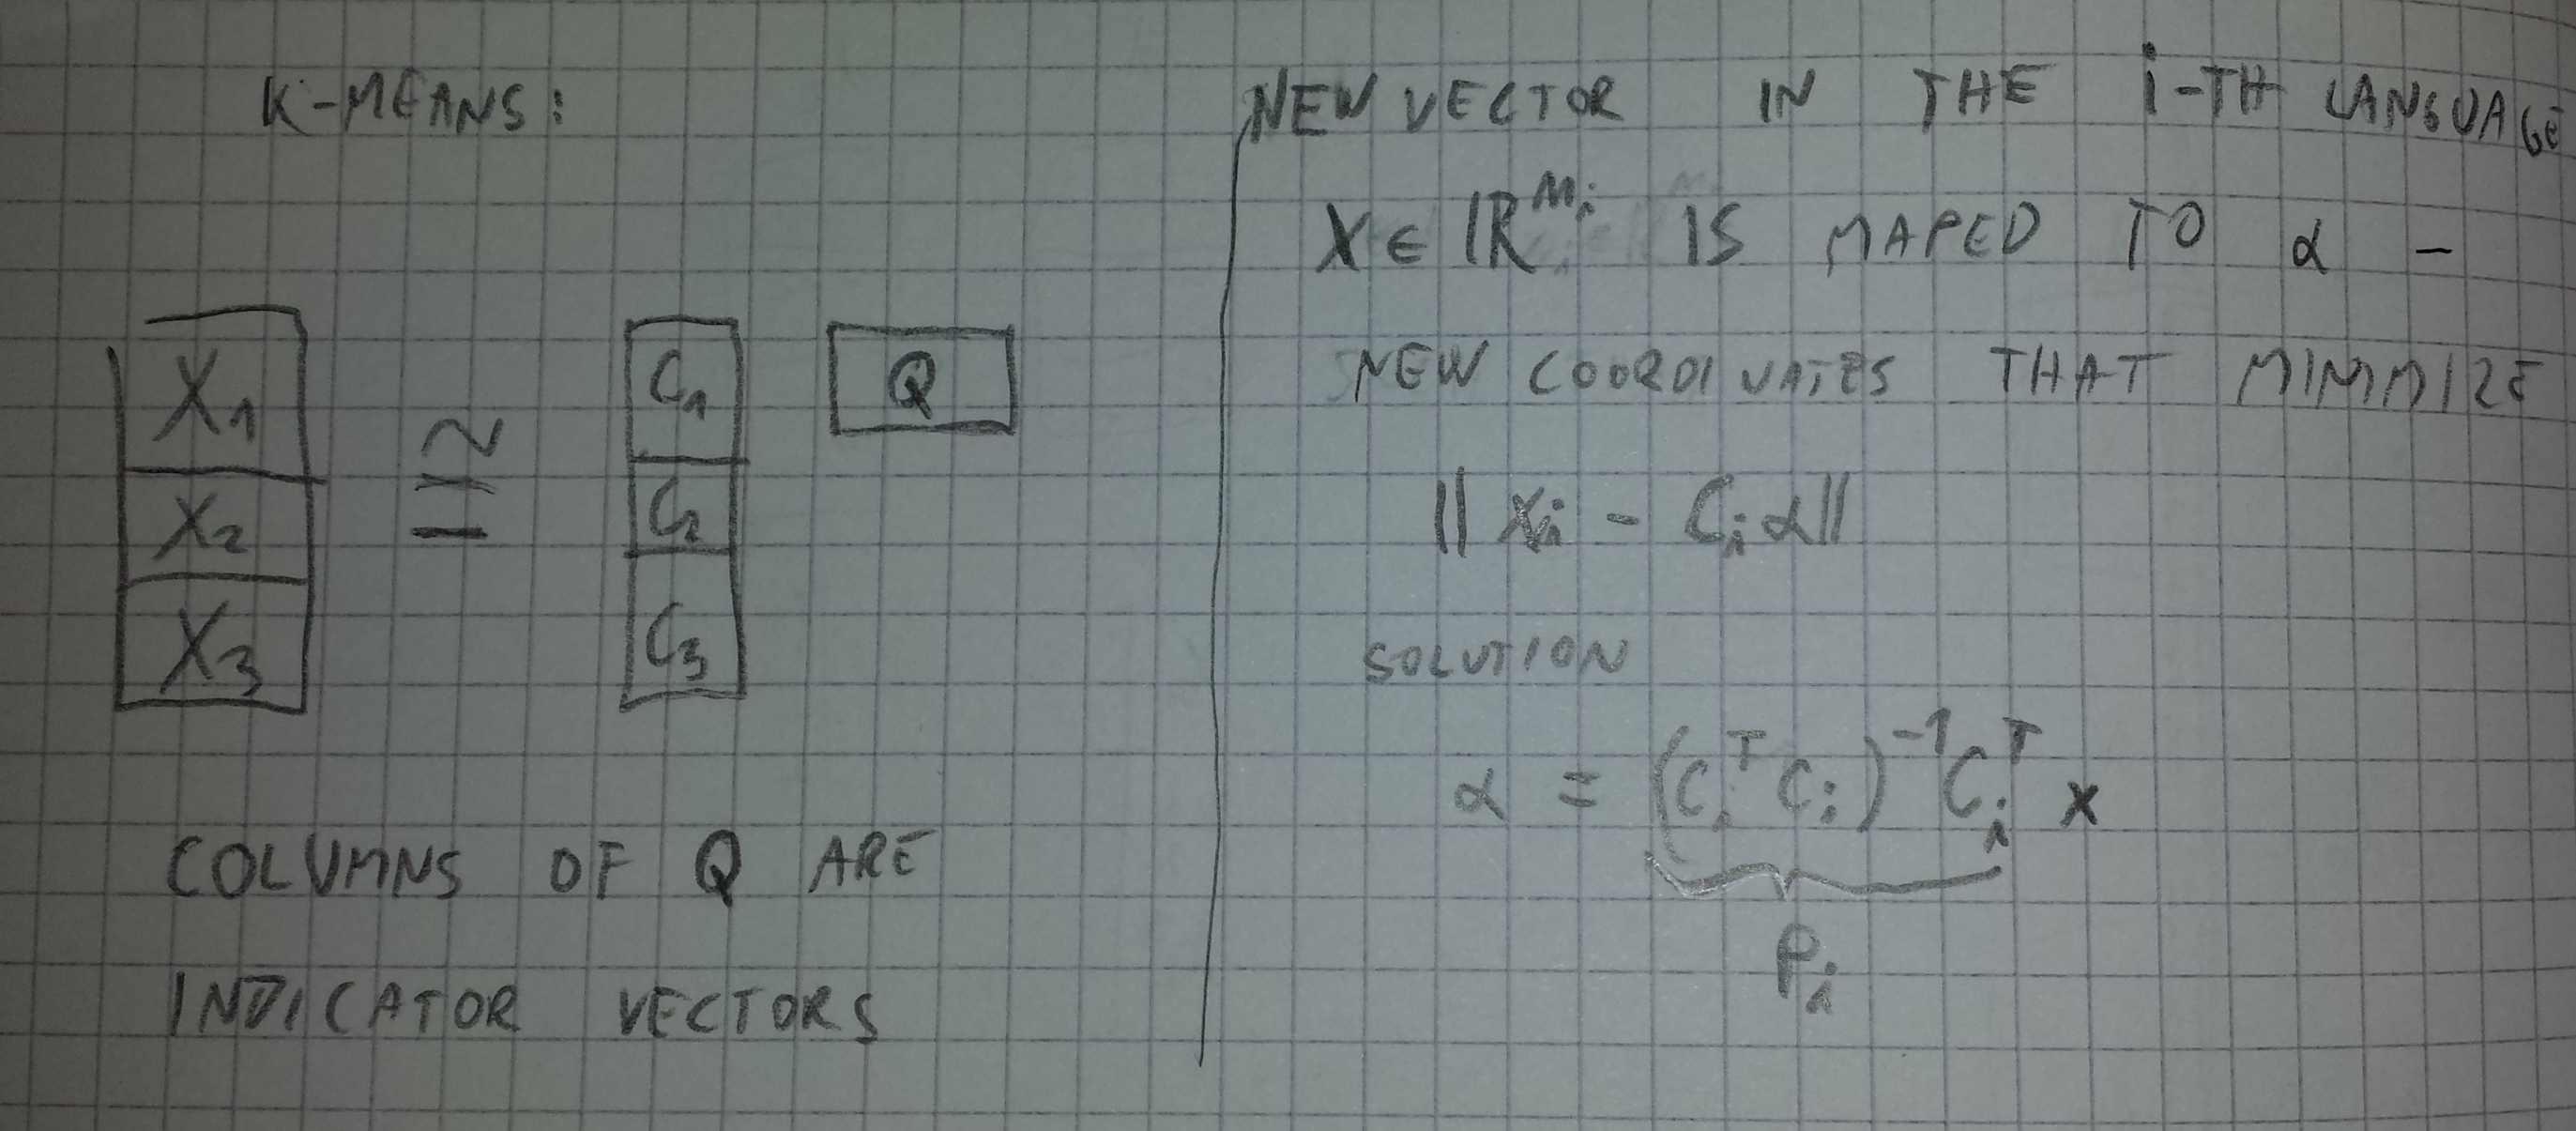 K-MEANS:
X₁ ≅ C₁ Q
X₂ C₂
X₃ C₃
COLUMNS OF Q ARE
INDICATOR VECTORS
NEW VECTOR IN THE i-TH LANGUAGE
X ∈ ℝ^{M_i} IS MAPED TO α -
NEW COORDINATES THAT MINIMIZE
|| X_i - C_i α ||
SOLUTION
α = (C_i^T C_i)^{-1} C_i^T x
P_i